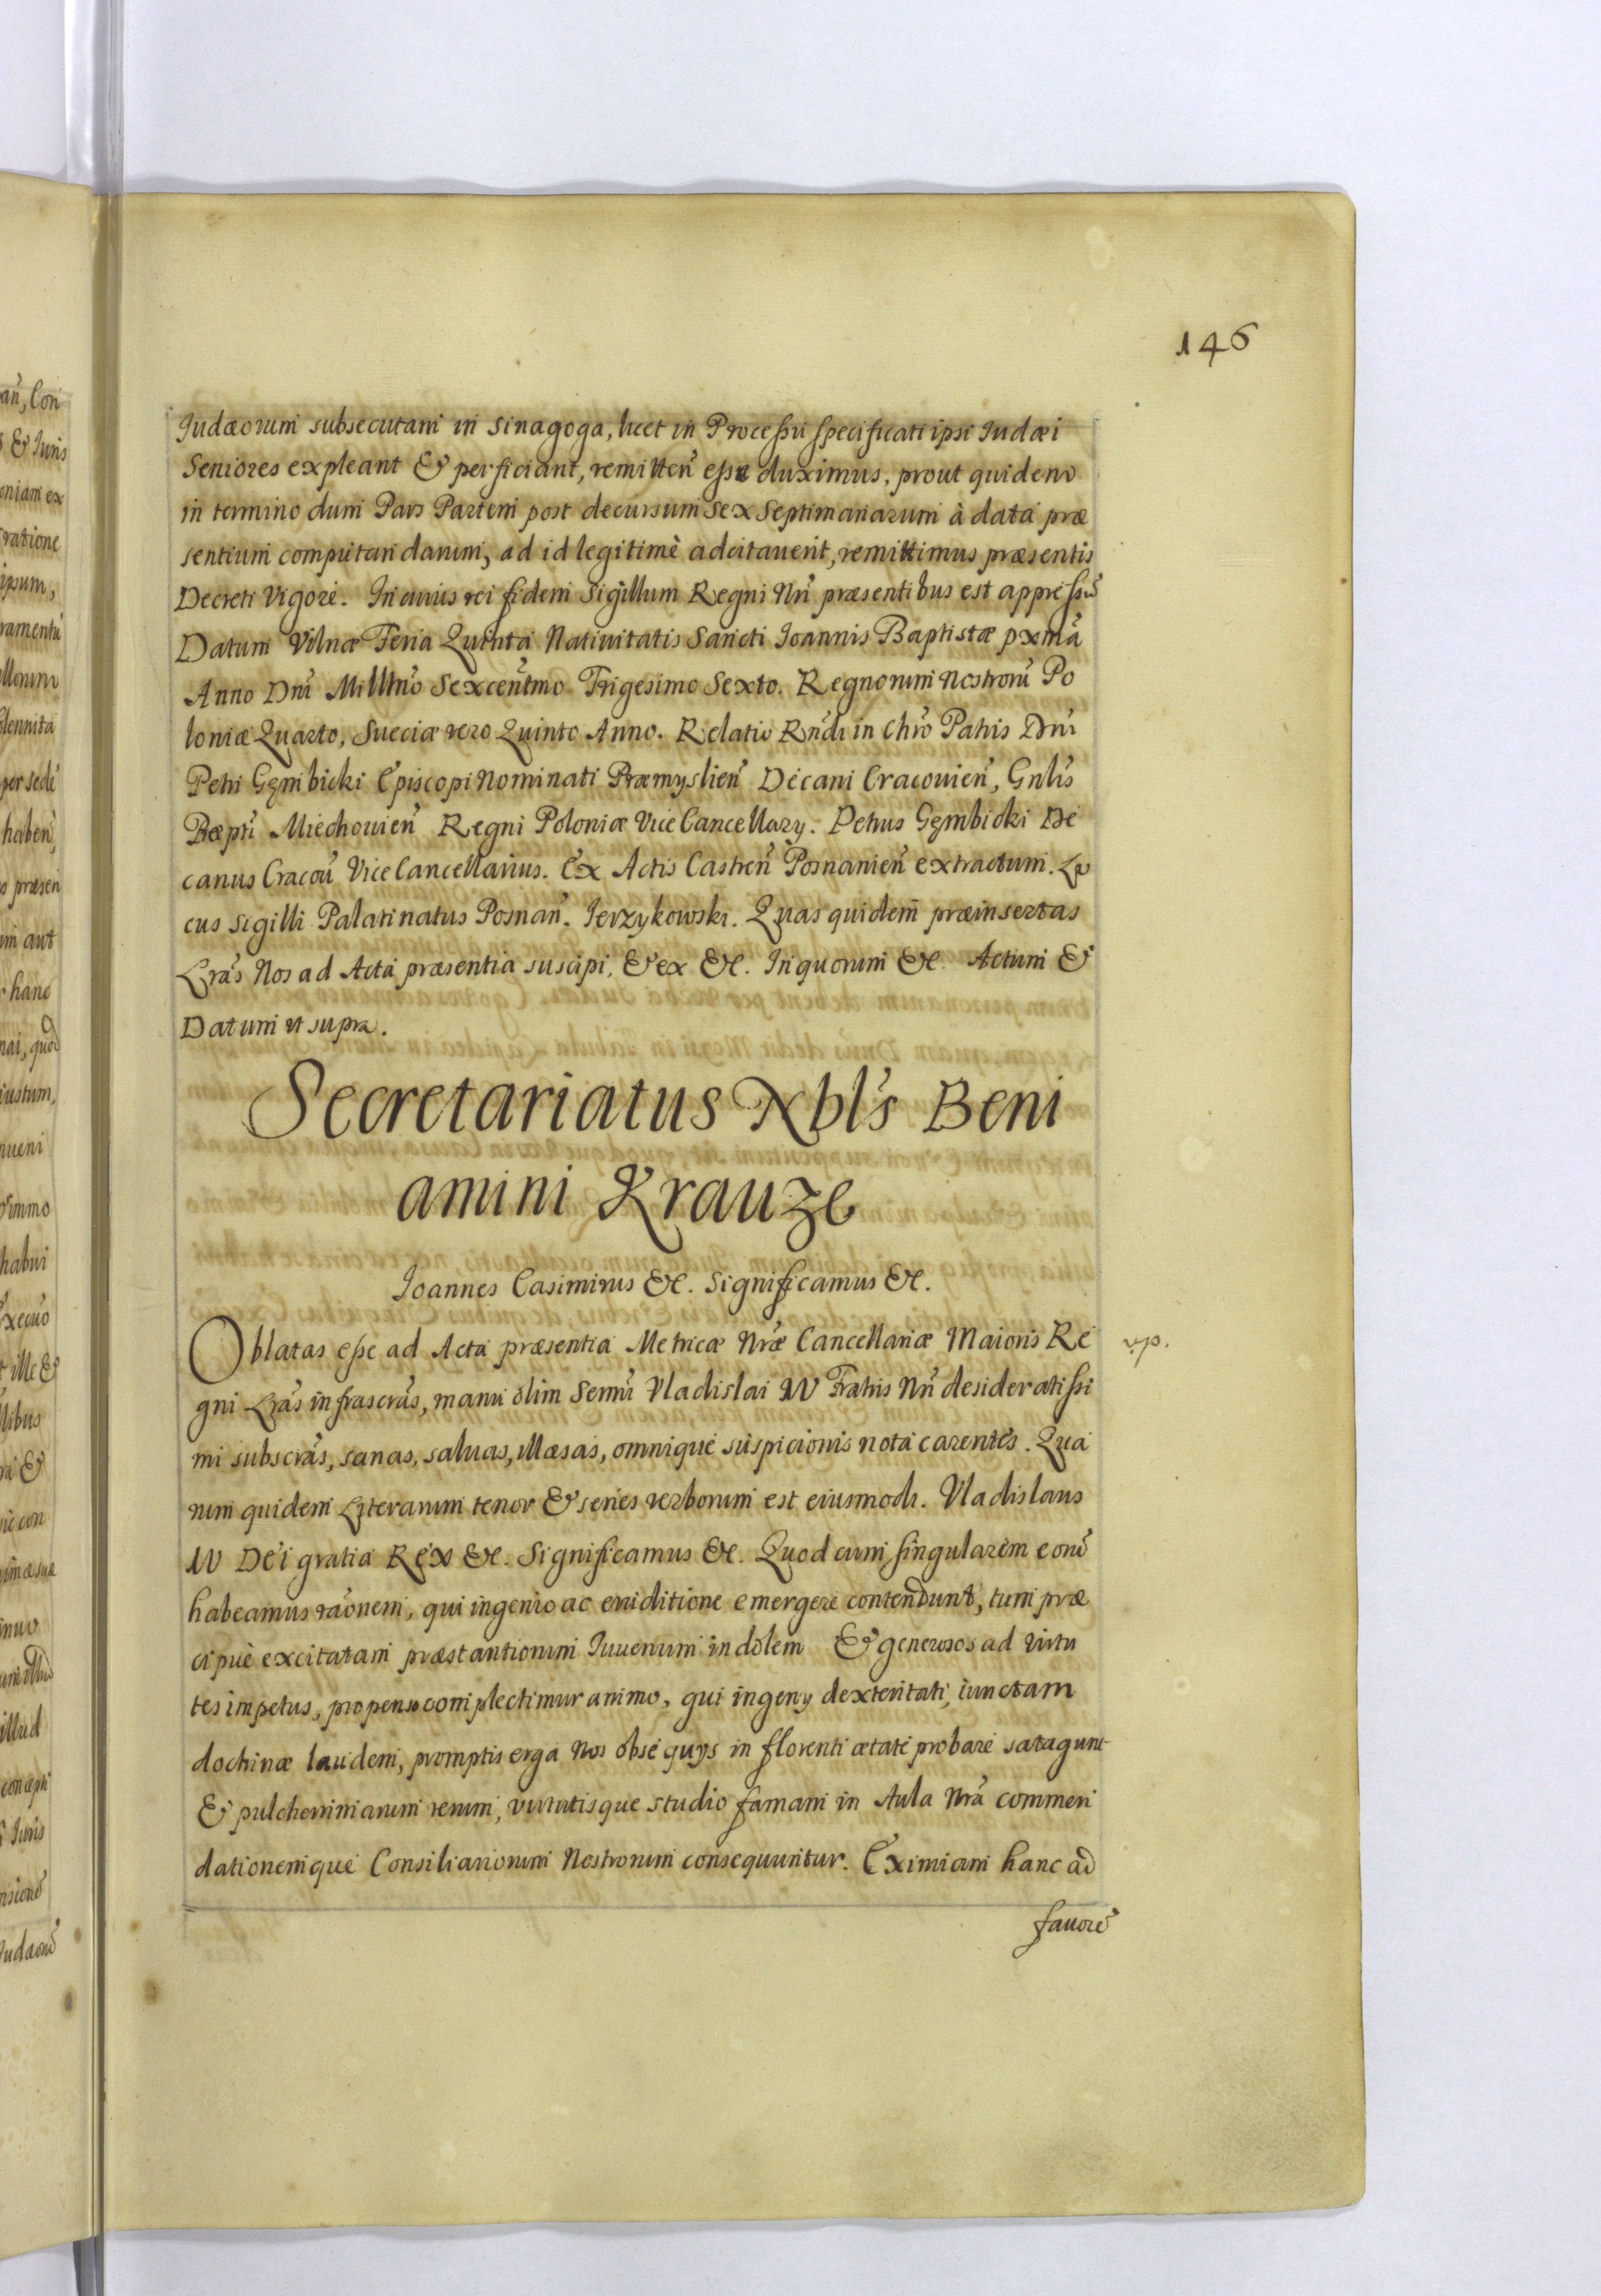 146
Iudæorum subsecutam in Sinagoga, licet in Processu specificati ipsi Iudæi
Seniores expleant & perficiant, remitten̄ esse duximus, prout quidem
in termino dum Pars Partem post decursum Sex Septimanarum à data præ
sentium computandarum, ad id legitimè adcitaverit, remittimus præsentis
Decreti Vigore. In cuius rei fidem Sigillum Regni Nr̄i præsentibus est appressū
Datum Vilnæ Feria Quinta Nativitatis Sancti Ioannis Baptistæ pxm̄a
Anno Dn̄i Millm̄o Sexcen̄tmo Trigesimo Sexto. Regnorum Nostrorū Po
loniæ Quarto, Sueciæ vero Quinto Anno. Relatio Rn̄di in Chr̄o Patris Dn̄i
Petri Gęmbicki Episcopi Nominati Præmyslien̄ Decani Cracouien̄, Gnl̄is
Præptī Miechouien̄ Regni Poloniæ Vice Cancellary. Petrus Gęmbicki De
canus Cracoū Vice Cancellarius. Ex Actis Castren̄ Posnanien̄ extractum. Lo
cus Sigilli Palatinatus Posnan̄. Ierzykowski. Quas quidem præinsertas
Lr̄as Nos ad Acta præsentia suscipi, & ex &c. In quorum &c. Actum &
Datum ut supra.
Secretariatus Nbl̄s Beni
amini Krauze
Ioannes Casimirus &c. Significamus &c.
Oblatas esse ad Acta præsentia Metricæ Nr̄æ Cancellariæ Maioris Re
v.p.
gni Lr̄as infrascr̄as, manu olim Serm̄i Vladislai IV Fratris Nr̄i desideratissi
mi subscr̄as, sanas, saluas, illæsas, omnique suspicionis nota carentes. Qua
rum quidem Literarum tenor & series verborum est eiusmodi. Vladislaus
IV Dei gratia Rex &c. Significamus &c. Quod cum singularem eorū
habeamus raōnem, qui ingenio ac eruditione emergere contendunt, tum præ
cipuè excitatam præstantiorum Iuuenum indolem & generosos ad virtu
tes impetus, propenso complectimur animo, qui ingeny dexteritati, iunctam
doctrinæ laudem, promptis erga Nos obsequys in florenti ætate probare satagunt
& pulcherrimarum rerum, virtutisque studio famam in Aula Nr̄a commen
dationemque Consiliariorum Nostrorum consequuntur. Eximiam hanc ad
fauorē